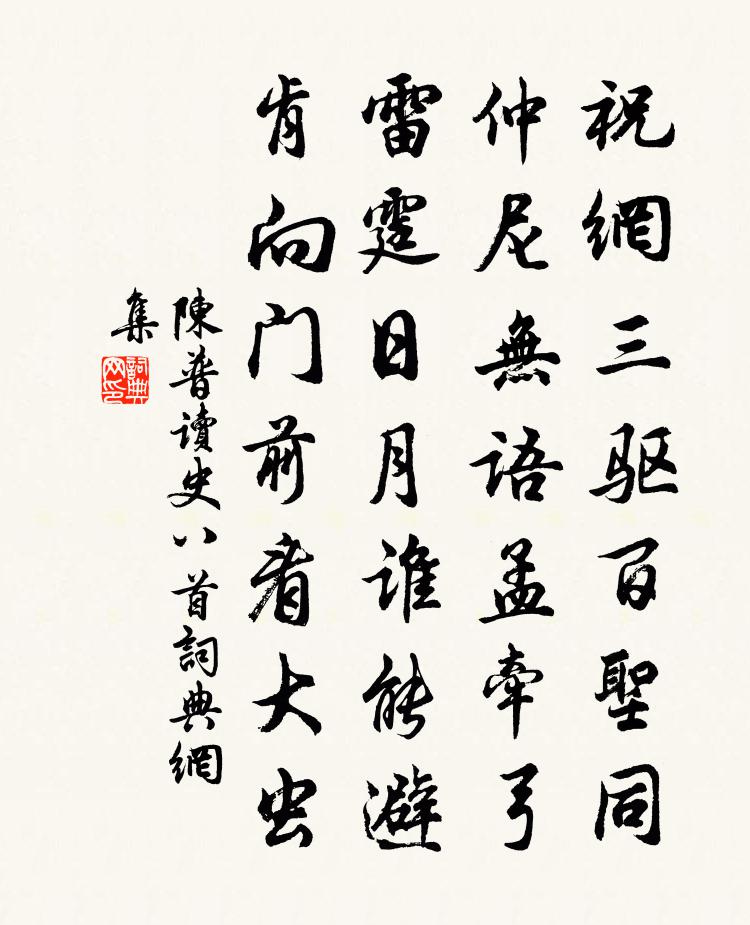 祝網三驱百聖同
仲尼無語孟牽弓
雷霆日月谁能避
肯向门前看大虫
陳普讀史八首詞典網
集
詞典网印